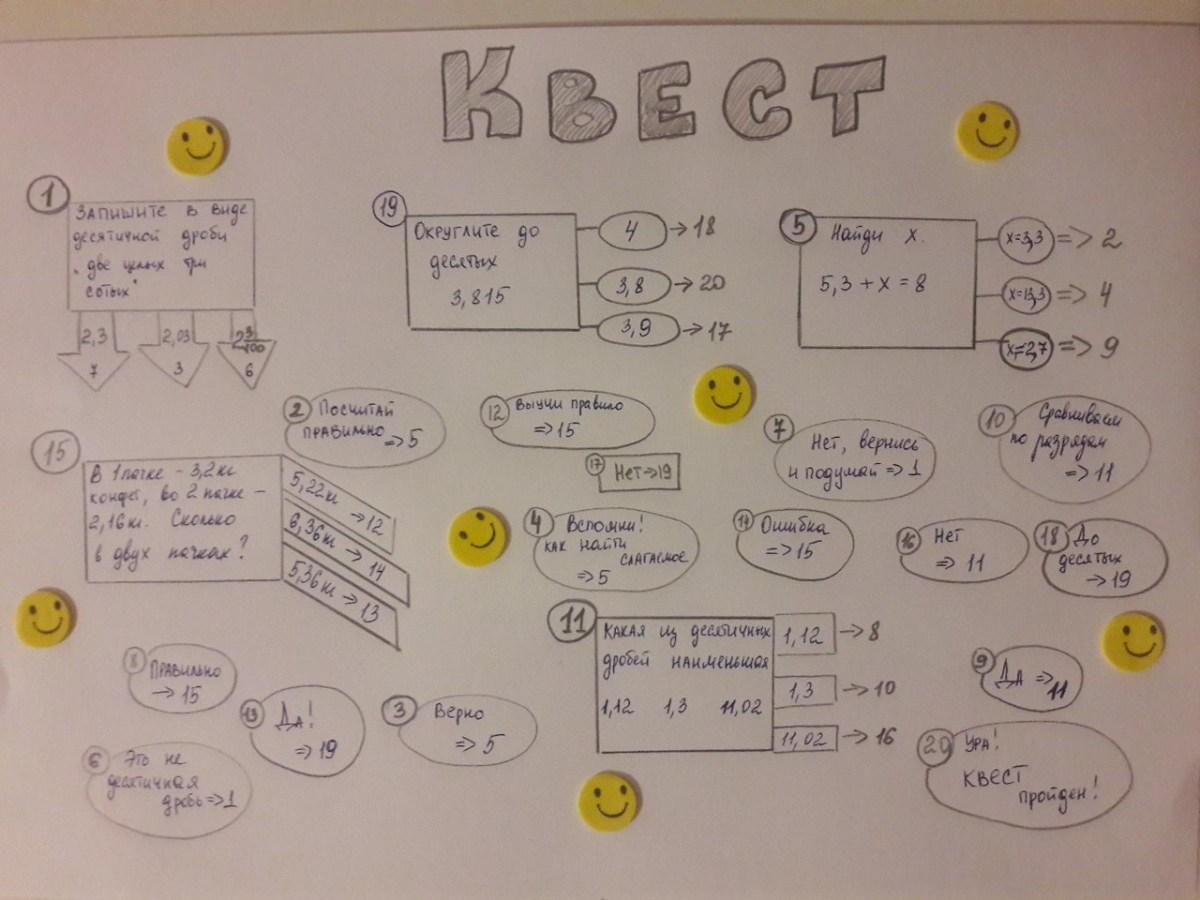 КВЕСТ
1
Запишите в виде
десятичной дроби
„ две целых три
сотых"
2,3
7
2,03
3
2 3/100
6
19
Округлите до
десятых
3,815
4 → 18
3,8 → 20
3,9 → 17
5
Найди x.
5,3 + x = 8
x=3,3 => 2
x=13,3 => 4
x=2,7 => 9
15
В 1 пачке - 3,2 кг
конфет, во 2 пачке -
2,16 кг. Сколько
в двух пачках?
5,22 кг → 12
6,36 кг → 14
5,36 кг → 13
2 Посчитай
правильно => 5
12 Выучи правило
=> 15
17 Нет → 19
7
Нет, вернись
и подумай => 1
10 Сравниваем
по разрядам
=> 11
4 Вспомни!
как найти
слагаемое
=> 5
14 Ошибка
=> 15
16 Нет
=> 11
18 До
десятых
→ 19
11
Какая из десятичных
дробей наименьшая
1,12 1,3 11,02
1,12 → 8
1,3 → 10
11,02 → 16
8
Правильно
→ 15
13 Да!
=> 19
3 Верно
=> 5
9
Да => 11
6 Это не
десятичная
дробь => 1
20 Ура!
КВЕСТ
пройден!